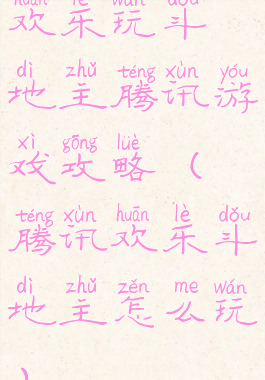 huān lè wán dǒu
欢乐玩斗
dì zhǔ téng xùn yóu
地主腾讯游
xì gōng lüè
戏攻略（
téng xùn huān lè dǒu
腾讯欢乐斗
dì zhǔ zěn me wán
地主怎么玩
）